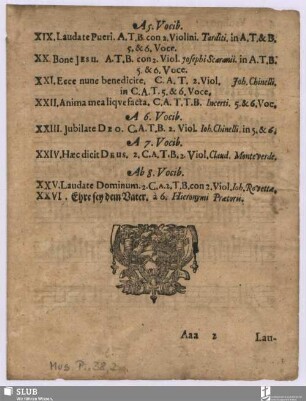 A 5. Vocib.
XIX. Laudate Pueri. A.T.B. con 2. Violini. Tarditi. in A.T. & B.
5. & 6. Voce.
XX. Bone Jesu. A.T.B. con 2. Viol. Josephi Scaranii. in A.T.B.
5. & 6. Voce.
XXI. Ecce nunc benedicite, C. A. T. 2. Viol. Joh. Chinelli,
in C.A.T. 5. & 6. Voce.
XXII. Anima mea liquefacta, C.A.T.T.B. Incerti. 5. & 6. Voc.
A 6. Vocib.
XXIII. Jubilate Deo. C.A.T.B. 2. Viol. Ioh. Chinelli, in 5. & 6.
A 7. Vocib.
XXIV. Hæc dicit Deus, 2. C.A.T.B. 2 Viol. Claud. Monteverde.
Ab 8. Vocib.
XXV. Laudate Dominum. 2. C.A. 2. T.B. con 2. Viol. Ioh. Rovettæ.
XXVI. Ehre sey dem Vater, à 6. Hieronymi Prætorii.
Aaa 2 Lau-
SLUB